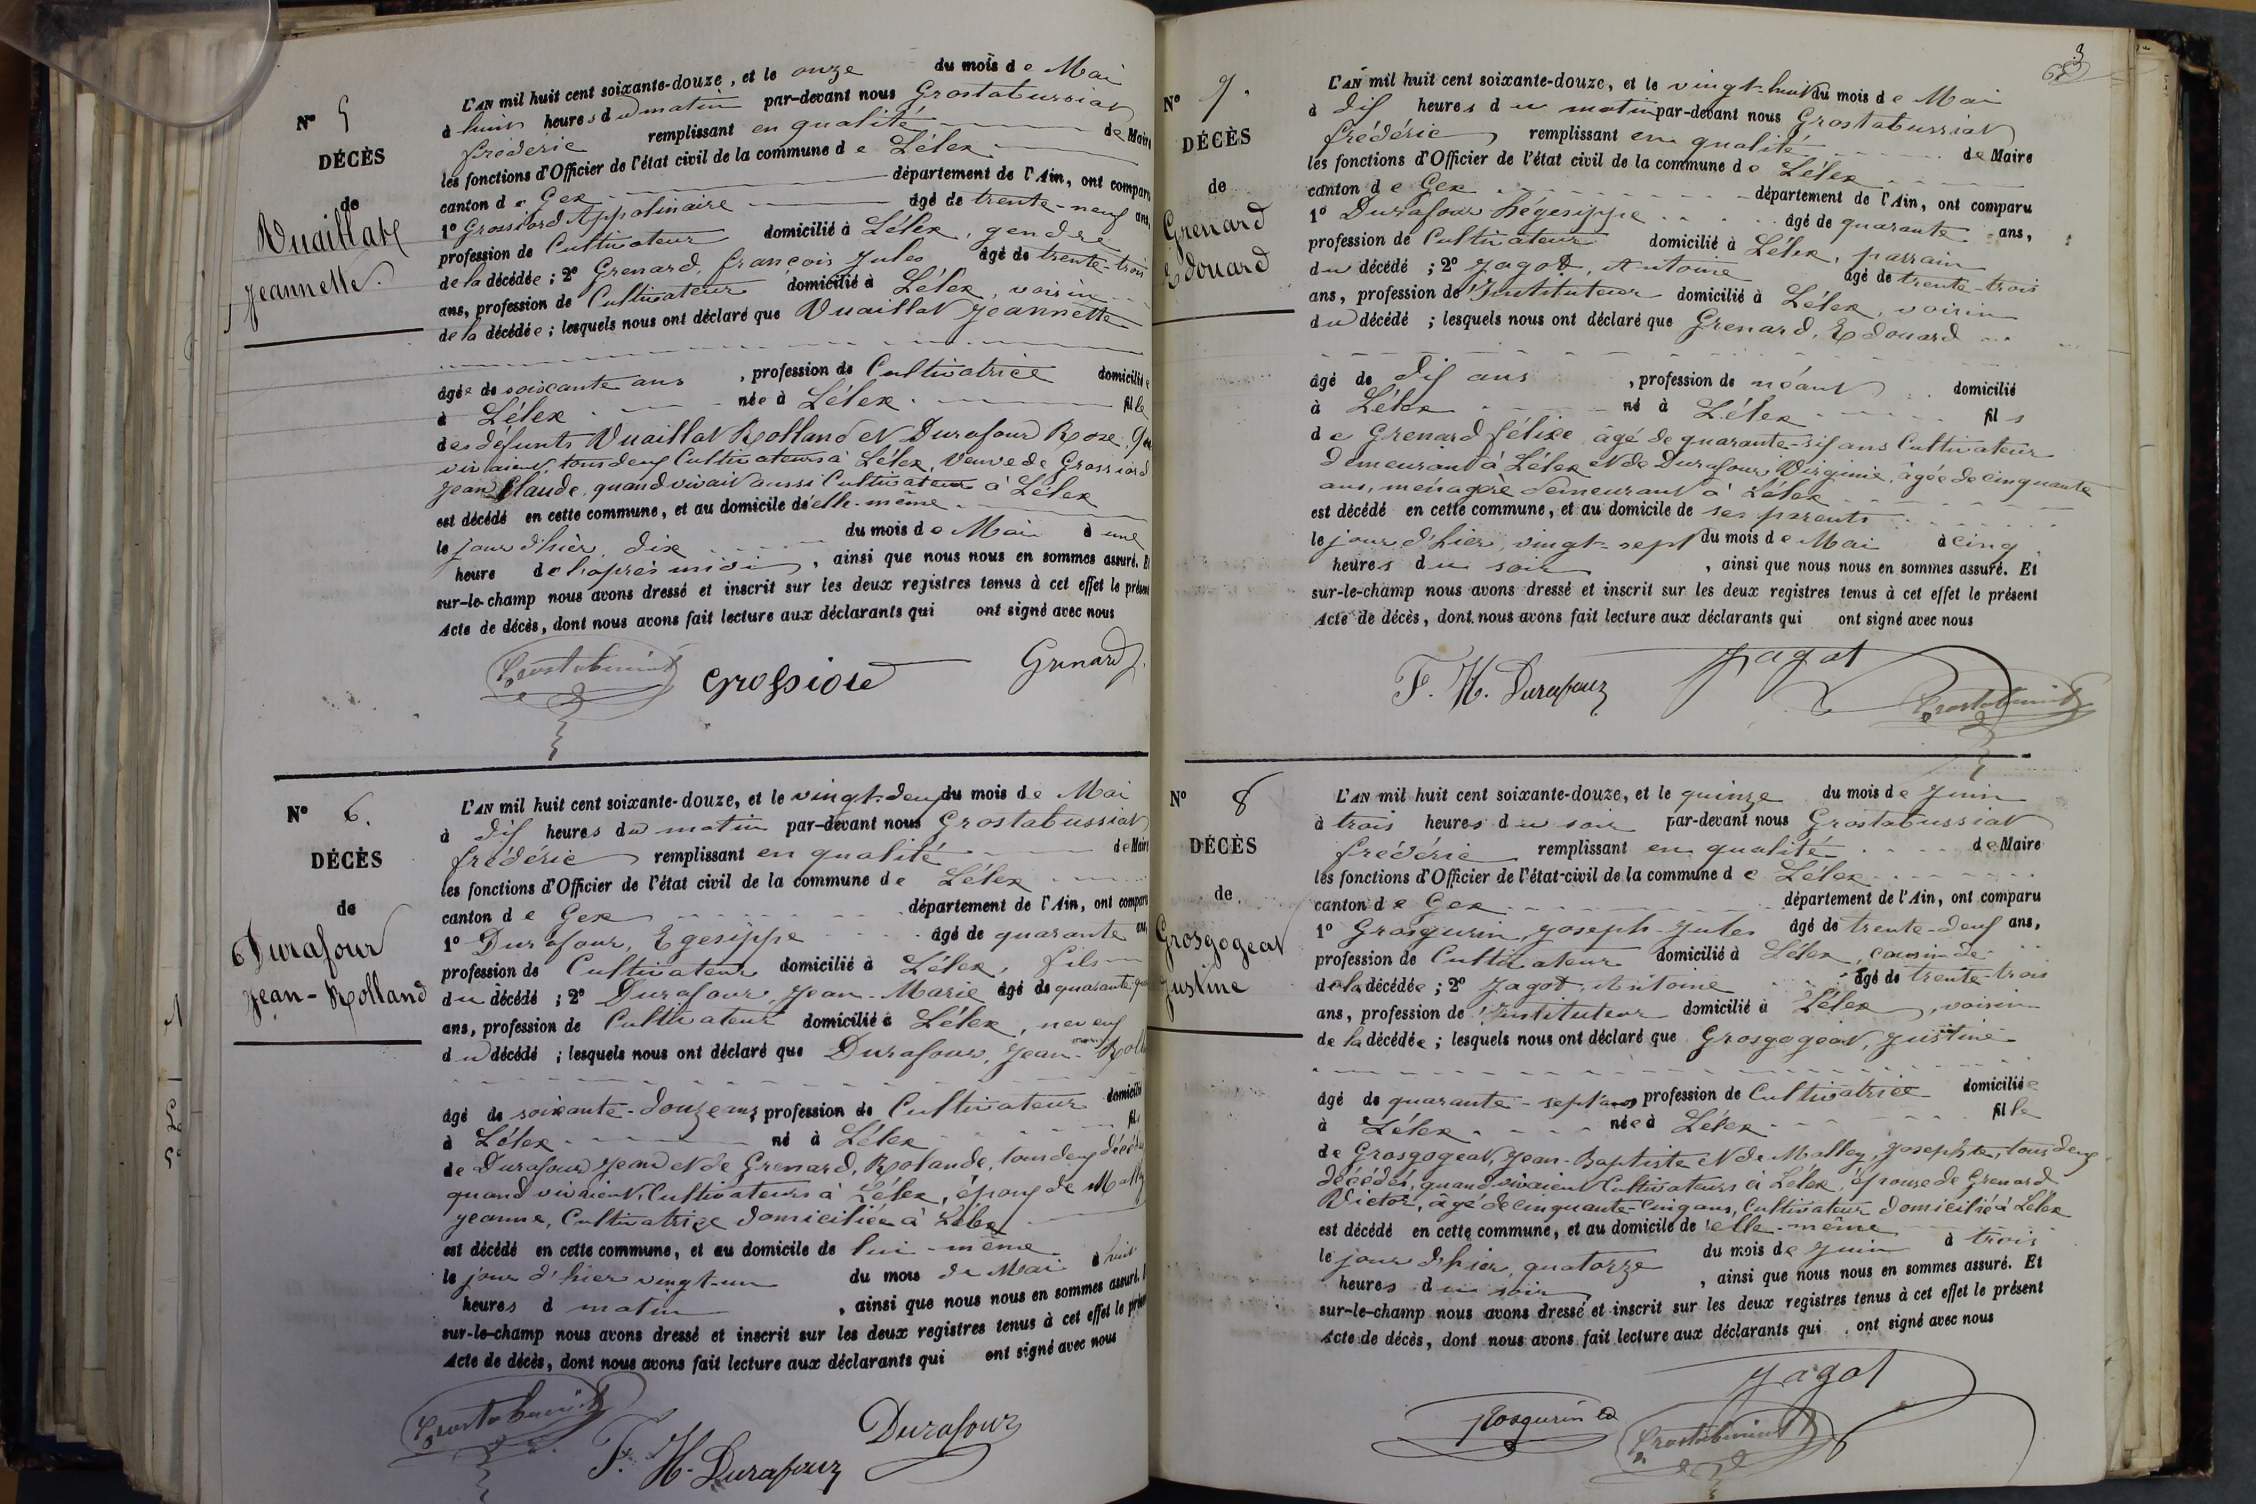 N° 5
DÉCÈS
de
Vuaillat
Jeannette.
L'AN mil huit cent soixante-douze, et le onze du mois de Mai
à huit heures du matin par-devant nous Grostabussiat
frédéric remplissant en qualité de Maire
les fonctions d'Officier de l'état civil de la commune de Lélex
canton de Gex département de l'Ain, ont comparu
1° Grossiord Appolinaire âgé de trente-neuf ans,
profession de Cultivateur domicilié à Lélex, gendre
de la décédée ; 2° Grenard, françois Jules âgé de trente-trois
ans, profession de Cultivateur domicilié à Lélex, voisin
de la décédée ; lesquels nous ont déclaré que Vuaillat Jeannette
âgée de soixante ans , profession de Cultivatrice domiciliée
à Lélex née à Lélex fille
des défunts Vuaillat Rolland et Durafour Rose. Qui
vivaient tous deux Cultivateurs à Lélex, Veuve de Grossiord
Jean Claude, quand vivait aussi Cultivateur à Lélex
est décédé en cette commune, et au domicile d'elle-même
le jour d'hier, dix du mois de Mai à une
heure de l'après midi , ainsi que nous nous en sommes assuré. Et
sur-le-champ nous avons dressé et inscrit sur les deux registres tenus à cet effet le présent
Acte de décès, dont nous avons fait lecture aux déclarants qui ont signé avec nous
Grostabussiat Grossiord Grenard
N° 6.
DÉCÈS
de
Durafour
Jean-Rolland
L'AN mil huit cent soixante-douze, et le vingt-deux du mois de Mai
à dix heures du matin par-devant nous Grostabussiat
frédéric remplissant en qualité de Maire
les fonctions d'Officier de l'état civil de la commune de Lélex
canton de Gex département de l'Ain, ont comparu
1° Durafour, Egesippe âgé de quarante ans,
profession de Cultivateur domicilié à Lélex, fils
du décédé ; 2° Durafour, Jean-Marie âgé de quarante
ans, profession de Cultivateur domicilié à Lélex, neveu
du décédé ; lesquels nous ont déclaré que Durafour, Jean-
âgé de soixante-douze ans, profession de Cultivateur domicilié
à Lélex né à Lélex fils
de Durafour Jean et de Grenard, Rolande, tous deux décédés
quand vivaient, Cultivateurs à Lélex, époux de
Jeanne, Cultivatrice domiciliée à Lélex
est décédé en cette commune, et au domicile de lui-même
le jour d'hier vingt-un du mois de Mai à huit
heures d matin , ainsi que nous nous en sommes assuré.
sur-le-champ nous avons dressé et inscrit sur les deux registres tenus à cet effet le présent
Acte de décès, dont nous avons fait lecture aux déclarants qui ont signé avec nous
Grostabussiat F. H. Durafour Durafour
3
N° 7.
DÉCÈS
de
Grenard
Edouard
L'AN mil huit cent soixante-douze, et le vingt-huit du mois de Mai
à dix heures du matin par-devant nous Grostabussiat
frédéric remplissant en qualité de Maire
les fonctions d'Officier de l'état civil de la commune de Lélex
canton de Gex département de l'Ain, ont comparu
1° Durafour hégesippe âgé de quarante ans,
profession de Cultivateur domicilié à Lélex, parrain
du décédé ; 2° Jagot, Antoine âgé de trente-trois
ans, profession d'Instituteur domicilié à Lélex, voisin
du décédé ; lesquels nous ont déclaré que Grenard, Edouard
âgé de dix ans , profession de néant domicilié
à Lélex né à Lélex fils
de Grenard félixe âgé de quarante-six ans Cultivateur
demeurant à Lélex et de Durafour Virginie, âgée de cinquante
ans, ménagère demeurant à Lélex
est décédé en cette commune, et au domicile de ses parents
le jour d'hier, vingt-sept du mois de Mai à cinq
heures du soir , ainsi que nous nous en sommes assuré. Et
sur-le-champ nous avons dressé et inscrit sur les deux registres tenus à cet effet le présent
Acte de décès, dont nous avons fait lecture aux déclarants qui ont signé avec nous
F. H. Durafour Jagot Grostabussiat
N° 8
DÉCÈS
de
Grosgogeat
Justine
L'AN mil huit cent soixante-douze, et le quinze du mois de Juin
à trois heures du soir par-devant nous Grostabussiat
frédéric remplissant en qualité de Maire
les fonctions d'Officier de l'état-civil de la commune de Lélex
canton de Gex département de l'Ain, ont comparu
1° Grosgurin, Joseph-Jules âgé de trente-deux ans,
profession de Cultivateur domicilié à Lélex, cousin de
de la décédée ; 2° Jagot, Antoine âgé de trente-trois
ans, profession d'Instituteur domicilié à Lélex, voisin
de la décédée ; lesquels nous ont déclaré que Grosgogeat, Justine
âgé de quarante-sept ans profession de Cultivatrice domiciliée
à Lélex née à Lélex fille
de Grosgogeat, Jean-Baptiste et de Malley, Josephte, tous deux
décédés, quand vivaient Cultivateurs à Lélex, épouse de Grenard
Victor, âgé de cinquante-cinq ans, Cultivateur domicilié à Lélex
est décédé en cette commune, et au domicile de elle-même
le jour d'hier, quatorze du mois de Juin à trois
heures du soir , ainsi que nous nous en sommes assuré. Et
sur-le-champ nous avons dressé et inscrit sur les deux registres tenus à cet effet le présent
Acte de décès, dont nous avons fait lecture aux déclarants qui ont signé avec nous
Jagot
Grosgurin Grostabussiat